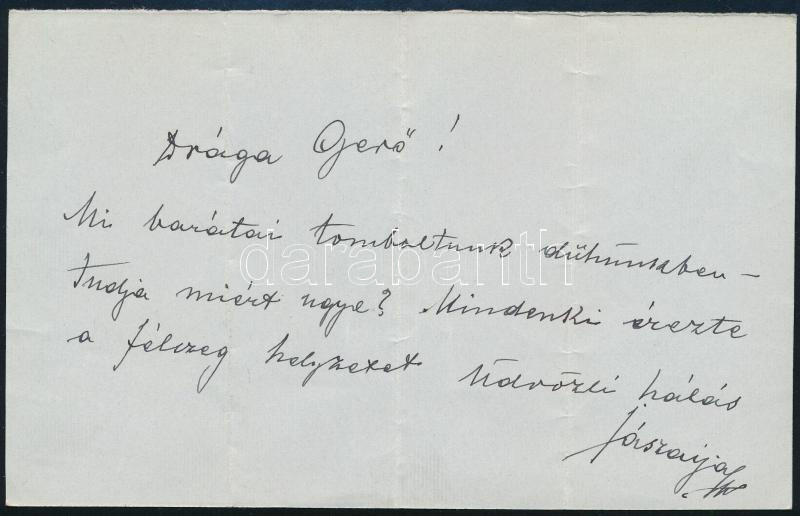 Drága Gerő!
Mi barátai tomboltunk dühünkben –
Tudja miért ugye? Mindenki érezte
a félszeg helyzetet Üdvözli hálás
Jászaija
darabanth